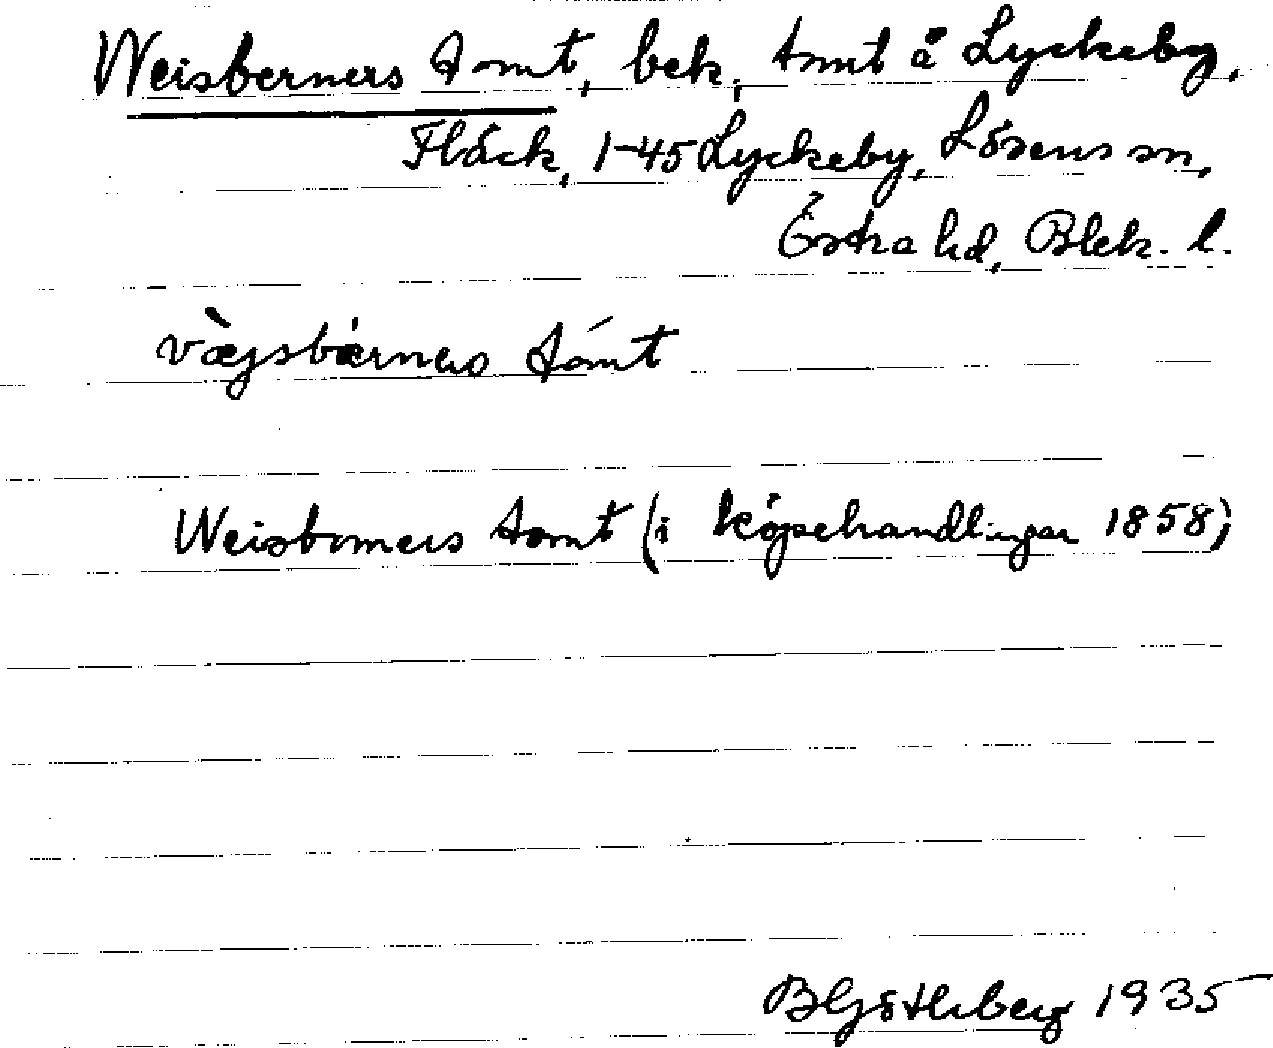 Weisberners tomt, bek. tomt å Lyckeby,
Fläck, 1-45 Lyckeby, Lösens sn,
Östra hd, Blek. l.
vägsbärners tómt
Weisbomers tomt (i köpehandlingar 1858)
B Götlreberg 1935